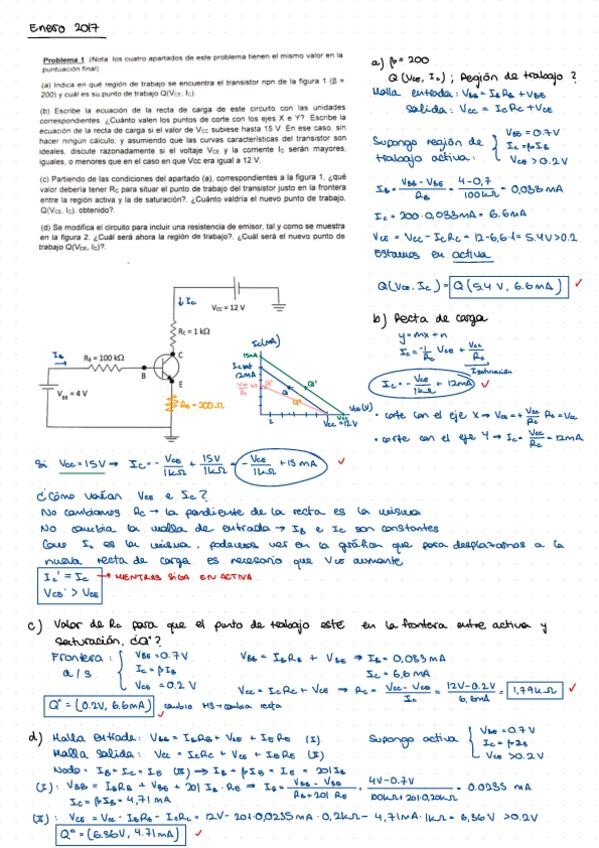 Enero 2017
Problema 1 (Nota los cuatro apartados de este problema tienen el mismo valor en la
puntuación final)
(a) Indica en qué región de trabajo se encuentra el transistor npn de la figura 1 (β =
200) y cuál es su punto de trabajo Q(VCE, IC)
(b) Escribe la ecuación de la recta de carga de este circuito con las unidades
correspondientes ¿Cuánto valen los puntos de corte con los ejes X e Y? Escribe la
ecuación de la recta de carga si el valor de Vcc subiese hasta 15 V En ese caso, sin
hacer ningún cálculo, y asumiendo que las curvas características del transistor son
ideales, discute razonadamente si el voltaje VCE y la corriente IC serán mayores,
iguales, o menores que en el caso en que Vcc era igual a 12 V.
(c) Partiendo de las condiciones del apartado (a), correspondientes a la figura 1, ¿qué
valor debería tener RC para situar el punto de trabajo del transistor justo en la frontera
entre la región activa y la de saturación?. ¿Cuánto valdría el nuevo punto de trabajo,
Q(VCE, IC), obtenido?.
(d) Se modifica el circuito para incluir una resistencia de emisor, tal y como se muestra
en la figura 2. ¿Cuál será ahora la región de trabajo?. ¿Cuál será el nuevo punto de
trabajo Q(VCE, IC)?.
↓ IC
VCC = 12 V
RC = 1 kΩ
IB
RB = 100 kΩ
B
C
E
VBB = 4 V
RE = 200Ω
IC (mA)
15mA
ICsat
12mA
Q'
Q
Q''
VCE (V)
VCC = 12V
a) β = 200
Q (VCE, IC) ; Región de trabajo ?
Malla entrada: VBB = IB RB + VBE
Salida: VCC = IC RC + VCE
Supongo región de trabajo activa: { VBE = 0.7V
IC = βIB
VCE > 0.2V
IB = (VBB - VBE)/RB = (4-0,7)/100kΩ = 0,033 mA
IC = 200·0,033mA = 6.6mA
VCE = VCC - IC RC = 12-6,6·1 = 5.4V > 0.2
Estamos en activa
Q(VCE, IC) = Q(5.4 V, 6.6 mA) ✓
b) Recta de carga
y = mx + n
IC = -1/RC VCE + VCC/RC
Isaturación
IC = - VCE/1kΩ + 12mA ✓
· corte con el eje X → VCE = + VCC/RC RC = VCC
· corte con el eje Y → IC = VCC/RC = 12mA
Si VCC = 15V → IC = - VCE/1kΩ + 15V/1kΩ = - VCE/1kΩ + 15 mA ✓
¿Cómo varían VCE e IC?
No cambiamos RC → la pendiente de la recta es la misma
No cambia la malla de entrada → IB e IC son constantes
Como IC es la misma, podemos ver en la gráfica que para desplazarnos a la
nueva recta de carga es necesario que VCE aumente
IC' = IC → MIENTRAS SIGA EN ACTIVA
VCE' > VCE
c) Valor de RC para que el punto de trabajo esté en la frontera entre activa y
saturación. ¿Q'?
Frontera a/s : { VBE = 0.7V
IC = βIB
VCE = 0.2 V
VBB = IB RB + VBE → IB = 0,033 mA
IC = 6,6 mA
VCC = IC RC + VCE → RC = (VCC - VCE)/IC = (12V-0.2V)/6,6mA = 1,79kΩ ✓
Q' = (0.2V, 6.6mA) ✓
d) Malla entrada: VBB = IB RB + VBE + IE RE (I)
Malla salida: VCC = IC RC + VCE + IE RE (II)
Supongo activa { VBE = 0.7V
IC = βIB
VCE > 0.2V
Nodo: IB + IC = IE (III) → IB + βIB = IE = 201IB
(I): VBB = IB RB + VBE + 201 IB · RE → IB = (VBB - VBE)/(RB + 201 RE) = (4V-0.7V)/(100kΩ + 201·0,20kΩ) = 0.0235 mA
IC = βIB = 4,71 mA
(II): VCE = VCC - IE RE - IC RC = 12V - 201·0,0235mA · 0,2kΩ - 4,71mA · 1kΩ = 6,36V > 0.2V
Q'' = (6.36V, 4.71mA) ✓